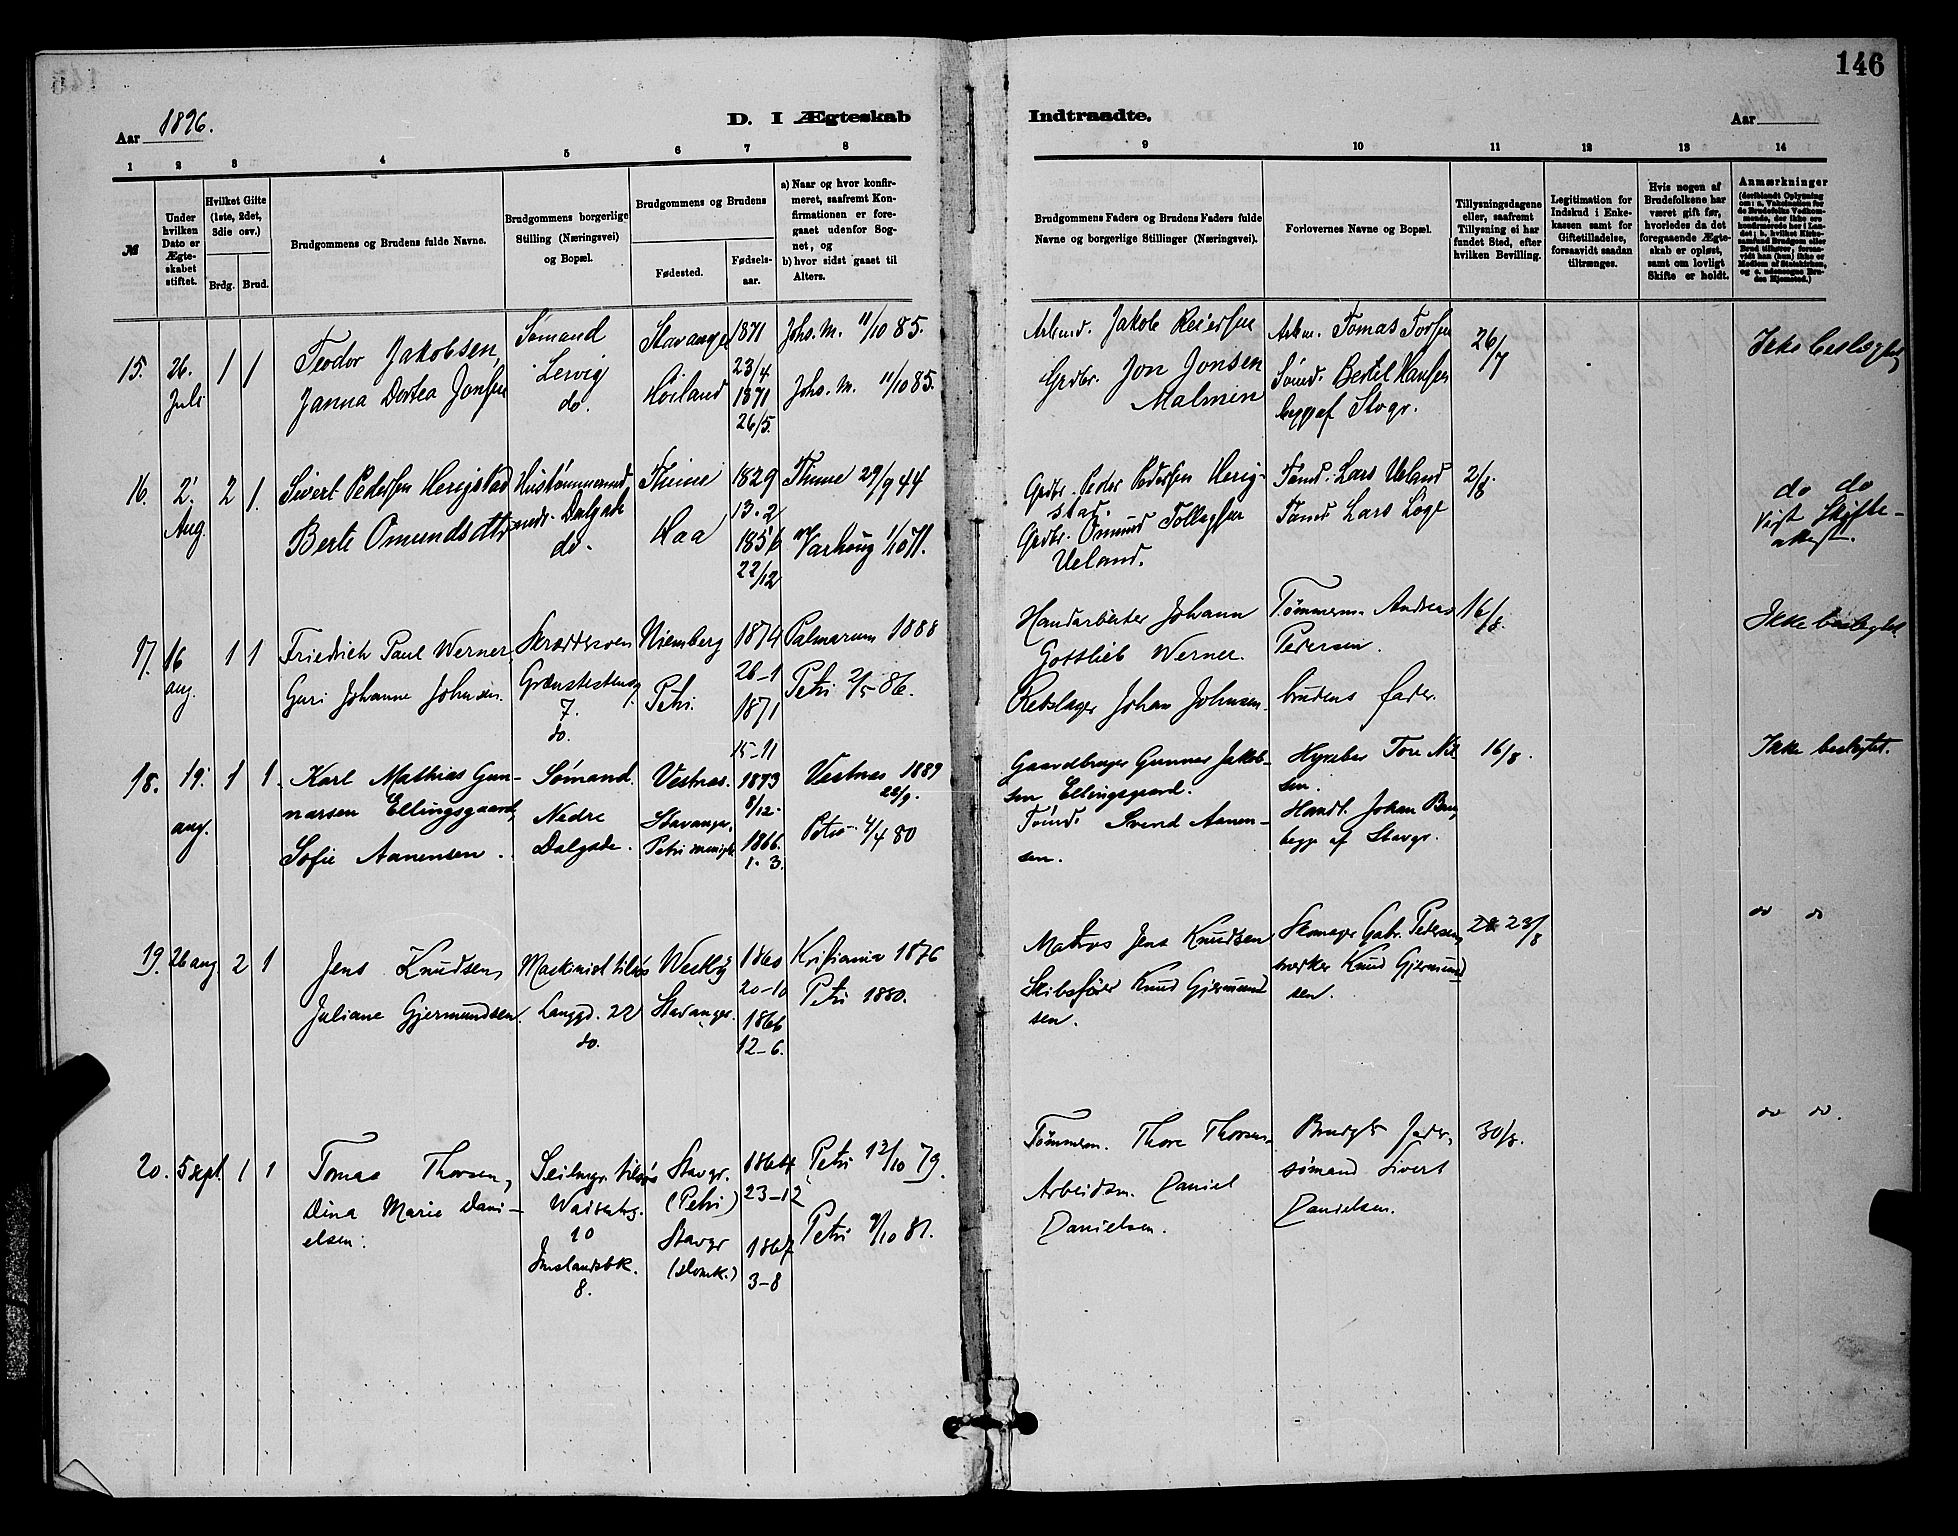 146
Aar 1896.
D. I Ægteskab
Indtraadte.
Aar
1 2 3 4 5 6 7 8
9 10 11 12 13 14
№
Under hvilken Dato er Ægteskabet stiftet.
Hvilket Gifte (1ste, 2det, 3die osv.)
Brdg. Brud.
Brudgommens og Brudens fulde Navne.
Brudgommens borgerlige Stilling (Næringsvei) og Bopæl.
Brudgommens og Brudens
Fødested.
Fødselsaar.
a) Naar og hvor konfirmeret, saafremt Konfirmationen er foregaaet udenfor Sognet, og
b) hvor sidst gaaet til Alters.
Brudgommens Faders og Brudens Faders fulde Navne og borgerlige Stillinger (Næringsvei).
Forlovernes Navne og Bopæl.
Tillysningsdagene eller, saafremt Tillysning ei har fundet Sted, efter hvilken Bevilling.
Legitimation for Indskud i Enkekassen samt for Giftetilladelse, forsaavidt saadan tiltrænges.
Hvis nogen af Brudefolkene har været gift før, hvorledes da det foregaaende Ægteskab er opløst, samt om lovligt Skifte er holdt.
Anmærkninger
15.
26.
Juli
1 1
Teodor Jakobsen,
Janna Dortea Jonsen
Sømand
Lervig
do.
Stavanger
Høiland
1871
23/4
1871
26/5.
Johs. M. 11/10 85.
Johs. M. 11/10 85.
Arbmd. Jakob Reiersen
Grdbr. Jon Jonsen
Malmin
Arbm. Tomas Torsen
Sømd. Bertel Hansen
begge af Stvgr.
26/7
Ikke beslægtet
16.
2.
Aug.
2 1.
Sivert Pedersen Herigstad
Berte Omundsdtr
Dalgade
do.
Thime
Haa
1829
13-2
1856
22/12
Thime 29/9 44
Varhaug 1/10 71.
Grdbr. Peder Pedersen Herigstad.
Grdbr. Omund Tollagsen
Ueland.
Tømd. Lars Ueland
Tømd Lars Loge
2/8.
do do
Vist Skifteattest.
17.
16
aug.
1 1
Friedrich Paul Werner,
Guri Johanne Johnsen.
7.
do.
Niemberg
Petri
1874
26-1
1871
15-11
Palmarum 1888
Petri 2/5 86.
Handarbeiter Johann
Gottlieb Werner.
Rebslager Johan Johnsen.
Tømmerm. Andreas
Pedersen.
brudens fader.
16/8.
Ikke beslegtet
18.
19.
aug.
1 1.
Karl Mathias Gunnarsen Ellingsgaard,
Sofie Aanensen.
Sømand.
Nedre
Dalgade.
Vestnæs.
Stavanger,
Petri menigh.
1873
8/12.
1866.
1. 3.
Vestnæs 1889
22/9.
Petri 4/4 80
Gaardbruger Gunnar Jakobsen Ellingsgaard.
Tømd. Svend Aanensen.
Hyrebas Tore Nilsen.
Handl. Johan
begge af Stavgr.
16/8.
Ikke beslegtet.
19.
26 aug
2 1
Jens Knudsen,
Juliane Gjermundsen.
Maskinist tilsøs
Langgd. 22
do.
Westby
Stavanger.
1860
20-10
1866
12-6.
Kristiania 1876
Petri 1880.
Matros Jens Knudsen
Skibsfører Knud Gjermundsen.
Skomager Gabr. Pedersen,
Knud Gjermundsen.
23/8
do do
20.
5 sept.
1 1
Tomas Thorsen,
Dina Marie Danielsen.
Seilmgr. tilsøs
10
8.
Stavgr.
(Petri)
Stavgr
(Domk.)
1864
23-12
1867
3-8
Petri 12/10 79.
Petri 9/10 81.
Tømmerm. Thore Thorsen.
Arbeidsm. Daniel
Danielsen.
Brudgs fader,
sømand Sivert
Danielsen.
30/8.
do do.